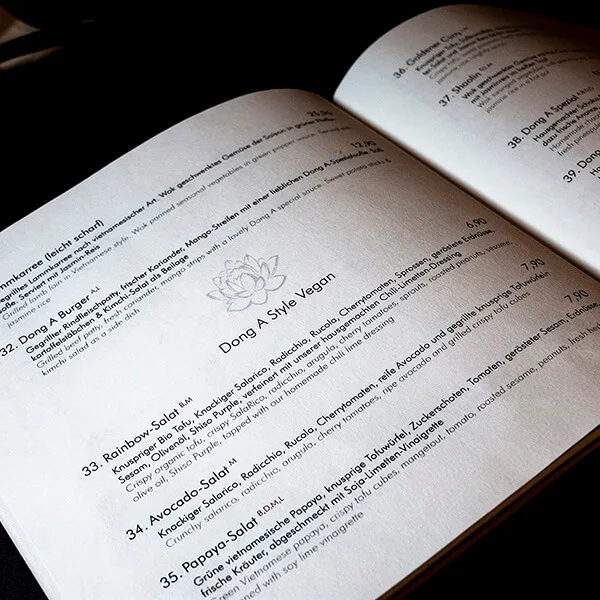 mmkarree (leicht scharf) 25,90
egrilltes Lammkarree nach vietnamesischer Art. Wok geschwenktes Gemüse der Saison in grüner Pfeffer-
soße. Servien mit Jasmin-Reis
Grilled lamb loin in Vietnamese style. Wok panned seasonal vegetables in green pepper sauce. Served with
jasmine rice
32. Dong A Burger A,I 12,90
Gegrillter Rindfleischpatty, frischer Koriander, Mango-Streifen mit einer lieblichen Dong A-Spezialsoße. Süß-
kartoffelstäbchen & Kimchi-Salat als Beilage
Grilled beef patty, fresh coriander, mango strips with a lovely Dong A special sauce. Sweet potato sticks &
kimchi salad as a side dish
Dong A Style Vegan
33. Rainbow-Salat B,M 6,90
Knuspriger Bio Tofu, Knackiger Salarico, Radicchio, Rucola, Cherrytomaten Sprossen, geröstete Erdnüsse,
Sesam, Olivenöl, Shiso Purple, verfeinert mit unserer hausgemachten Chili-Limetten-Dressing
Crispy organic tofu, crispy SalaRico, radicchio, arugula, cherry tomatoes, sprouts, roasted peanuts, sesame,
olive oil, Shiso Purple, topped with our homemade chili lime dressing
34. Avocado-Salat M 7,90
Knackiger Salarico, Radicchio, Rucola, Cherrytomaten, reife Avocado und gegrillte knusprige Tofuwürfeln
Crunchy salarico, radicchio, arugula, cherry tomatoes, ripe avocado and grilled crispy tofu cubes
35. Papaya-Salat B,D,M,L 7,90
Grüne vietnamesische Papaya, knusprige Tofuwürfel, Zuckerschoten, Tomaten, gerösteter Sesam, Erdnüsse,
frische Kräuter, abgeschmeckt mit Soja-Limetten-Vinaigrette
Green Vietnamese papaya, crispy tofu cubes, mangetout, tomato, roasted sesame, peanuts, fresh herbs
ned with soy lime vinaigrette
36. Goldener Curry
Knuspriger Tofu,
37. Shaolin
Wok geschwenktes Gemüse
mit Jasminreis
jasmine rice in a hot pot
38. Dong A Spezial
Hausgemachter
dazu frische Ananas,
Homemade
fresh pineapple
39. Dong